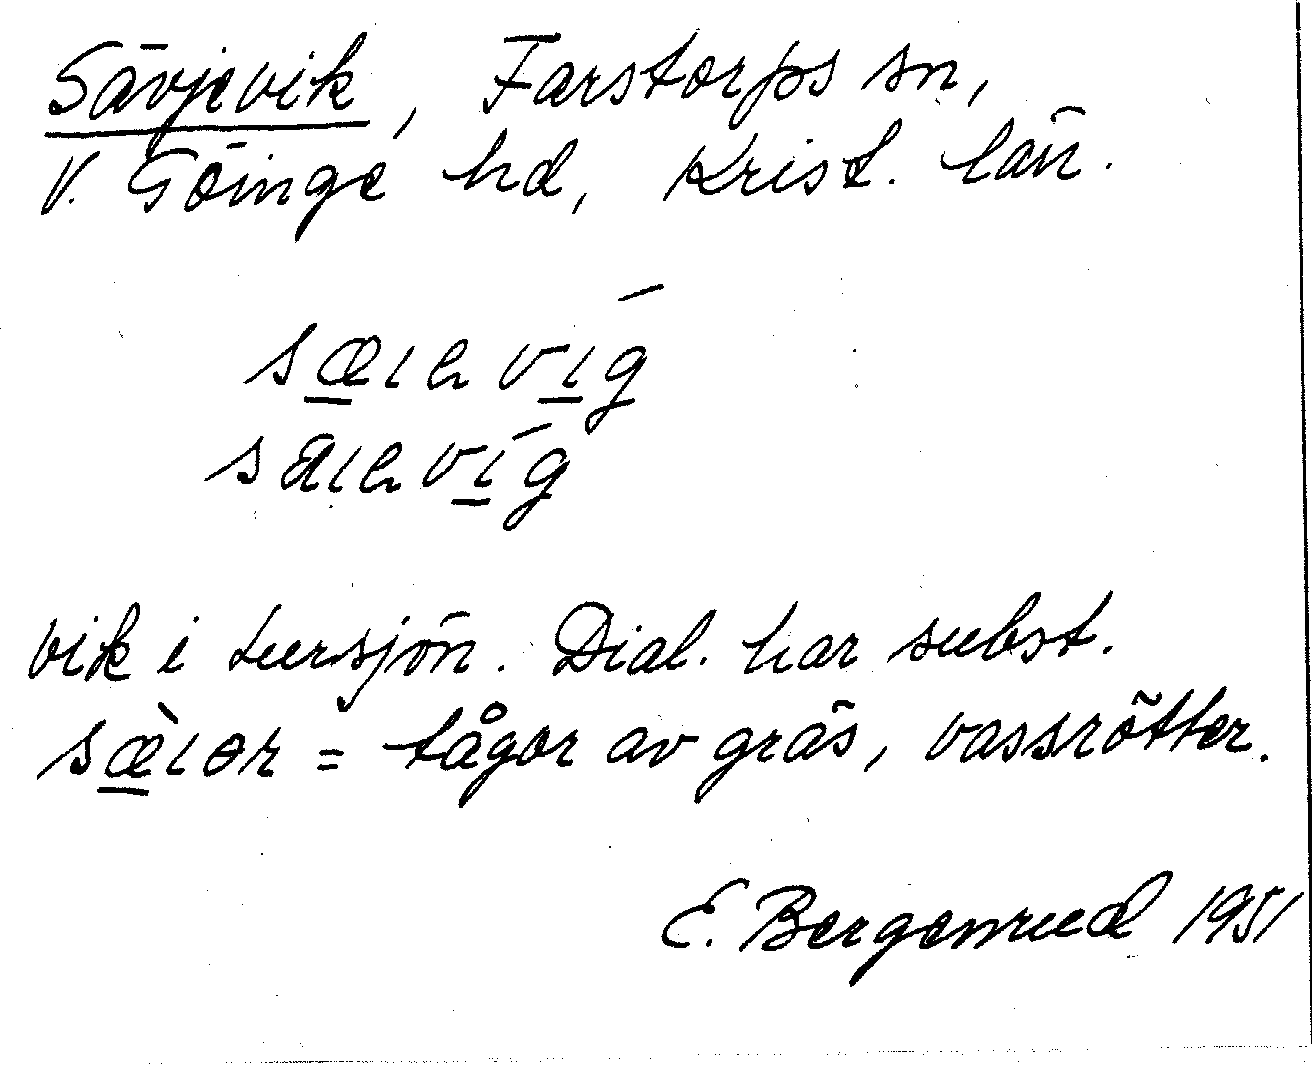 Sävjevik, Farstorps sn,
V. Göinge hd, Krist. län.
sæıɐvíg
saıɐvíg
vik i Lursjön. Dial. har subst.
sæ̀ıər = tågor av gräs, vassrötter.
E. Bergenrud 1951